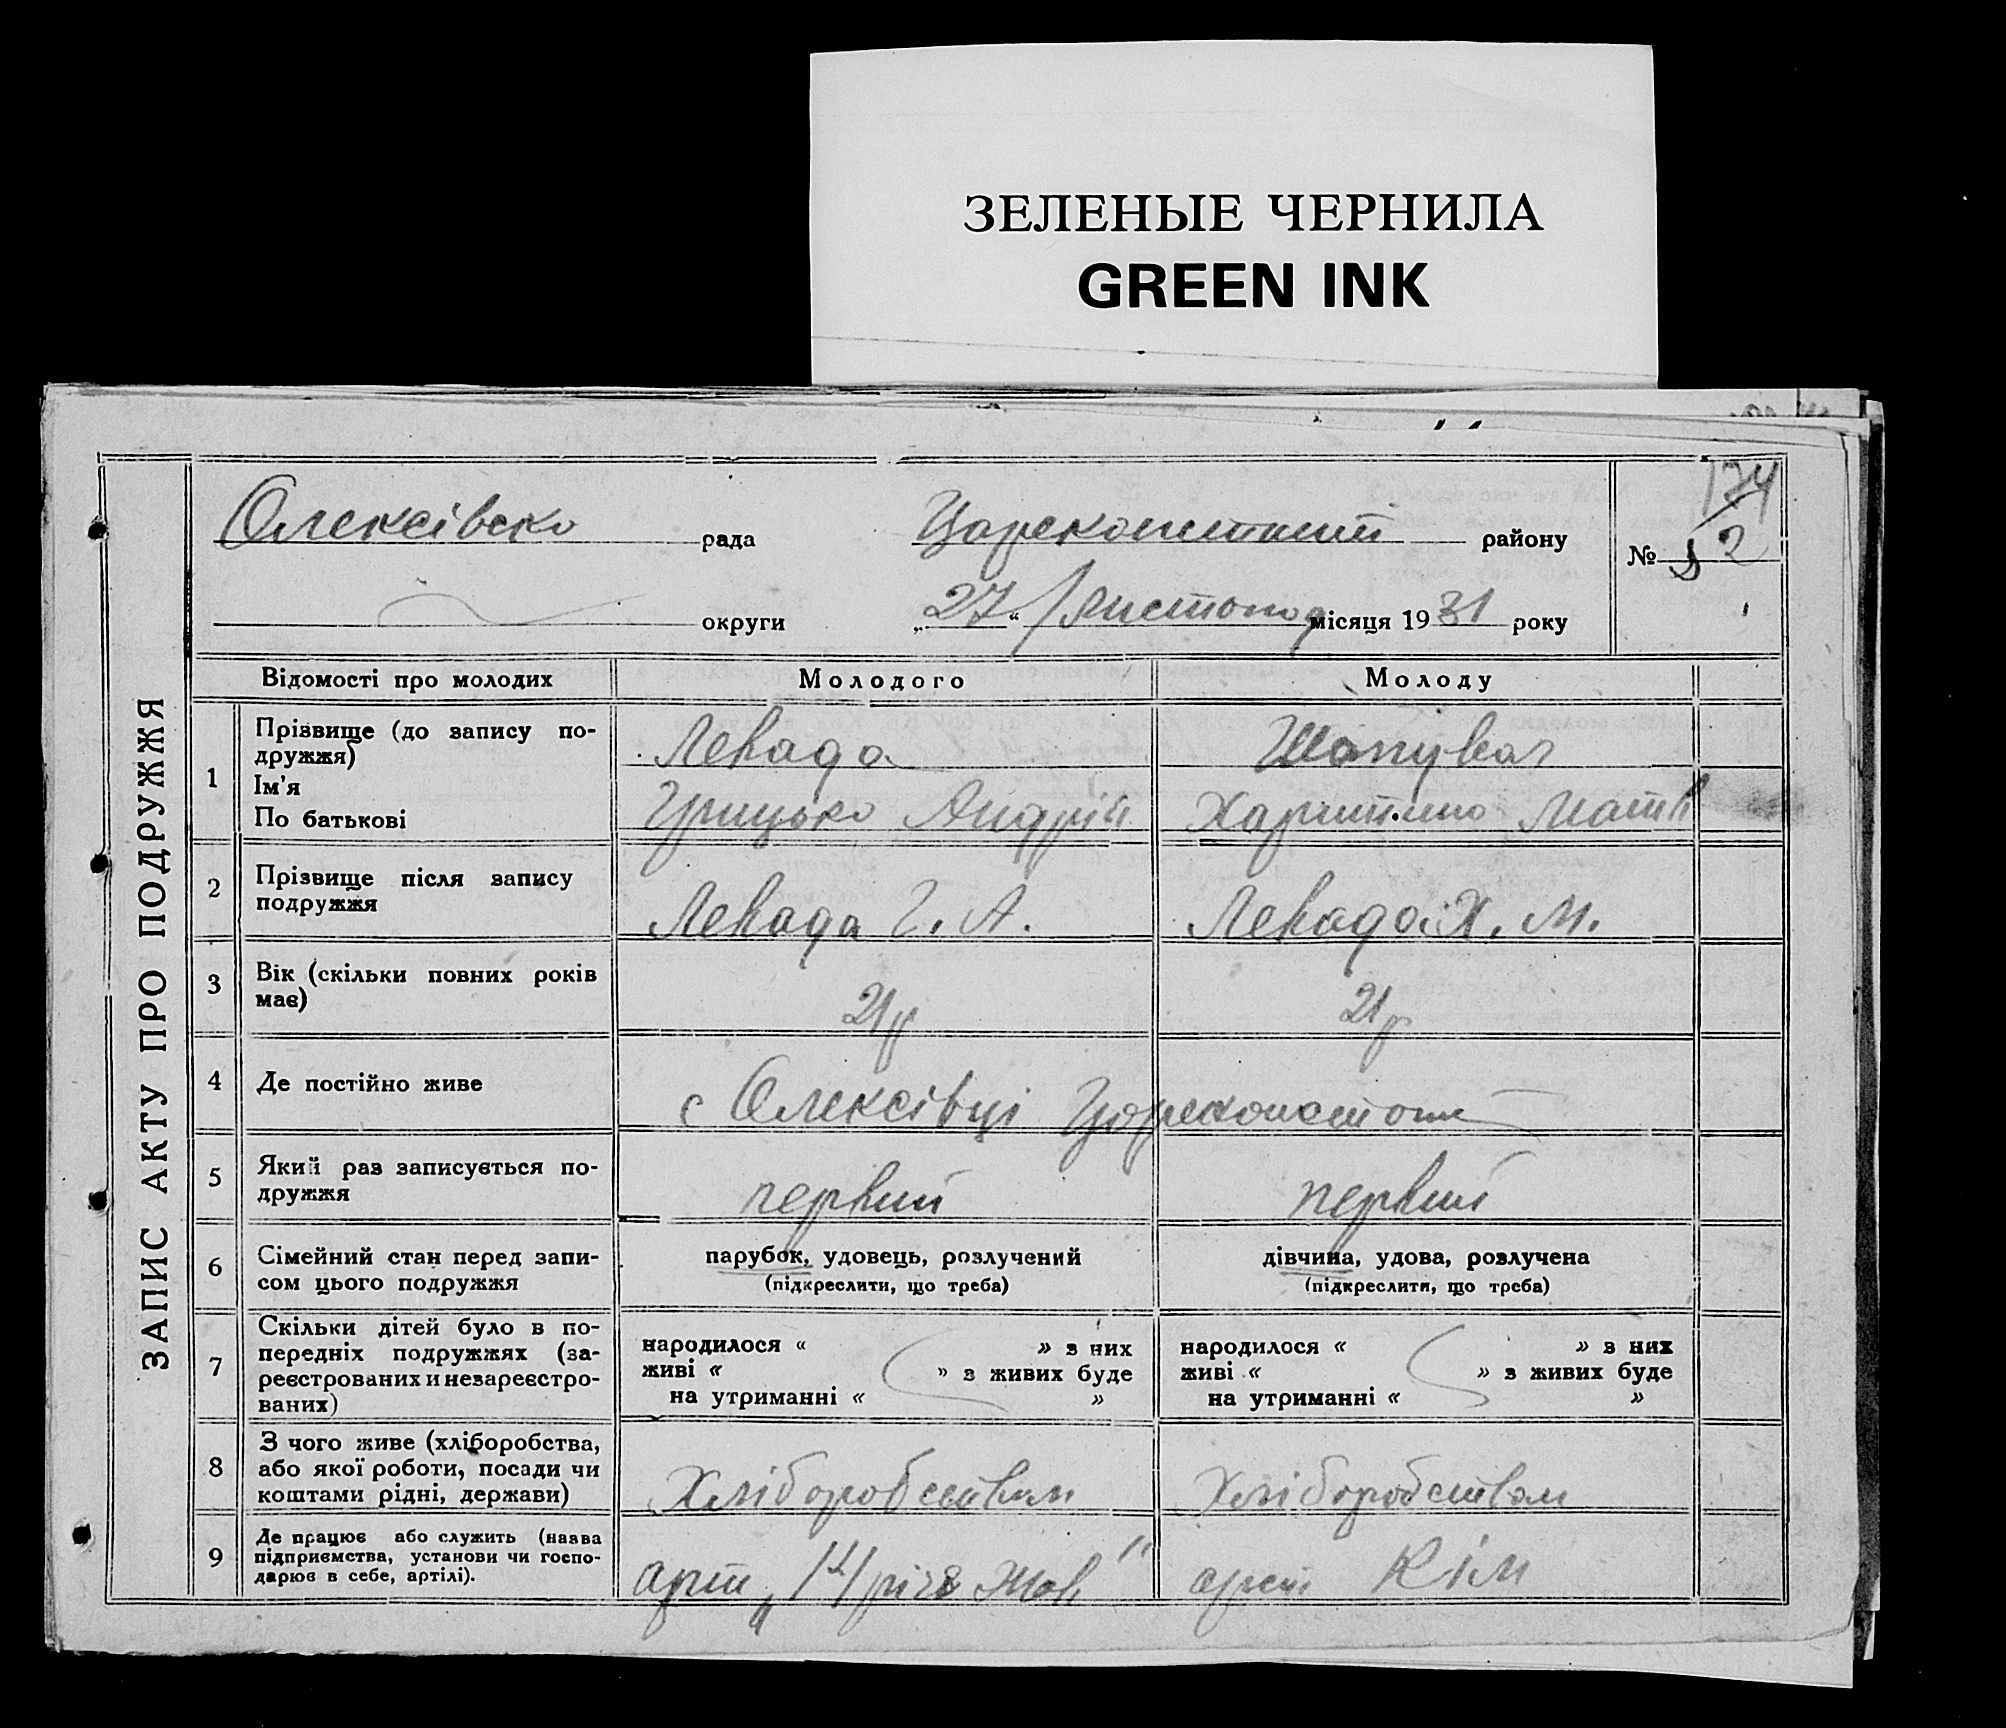 ЗЕЛЕНЫЕ ЧЕРНИЛА
GREEN INK
ЗАПИС АКТУ ПРО ПОДРУЖЖЯ
174
Олексівсько рада Царекопстаний району № 52
округи „27“ Листопод місяця 1931 року
Відомості про молодих Молодого Молоду
1 Прізвище (до запису по-
дружжя) Левада Шапувал
Ім'я
По батькові Грицько Андрій Харитино Матв
2 Прізвище після запису
подружжя Левада Г. А. Левада Х. М.
3 Вік (скільки повних років
має) 21р 21р
4 Де постійно живе с Олексівці
5 Який раз записується по-
дружжя первий первий
6 Сімейний стан перед запи-
сом цього подружжя
парубок, удовець, розлучений
(підкреслити, що треба)
дівчина, удова, розлучена
(підкреслити, що треба)
7 Скільки дітей було в по-
передніх подружжях (за-
реєстрованих и незареєстро-
ваних)
народилося « » з них
живі « » з живих буде
на утриманні « »
народилося « » з них
живі « » з живих буде
на утриманні « »
8 З чого живе (хліборобства,
або якої роботи, посади чи
коштами рідні, держави) Хліборобством Хліборобством
9 Де працює або служить (назва
підприємства, установи чи госпо-
дарює в себе, артілі). арт „14 річя Жов" арт КІМ